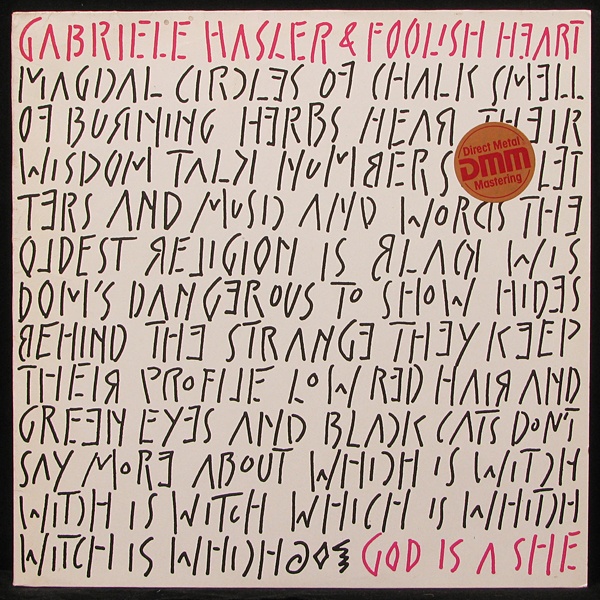 GABRIELE HASLER & FOOLISH HEART
MAGICAL CIRCLES OF CHALK SMELL
OF BURNING HERBS HEAR THEIR
WISDOM TALK NUMBERS LET
TERS AND MUSIC AND WORDS THE
OLDEST RELIGION IS BLACK WIS
DOM'S DANGEROUS TO SHOW HIDES
BEHIND THE STRANGE THEY KEEP
THEIR PROFILE LOW RED HAIR AND
GREEN EYES AND BLACK CATS DON'T
SAY MORE ABOUT WHICH IS WITCH
WITCH IS WITCH WHICH IS WHICH
WITCH IS WHICH GOD IS A SHE
Direct Metal
DMM
Mastering